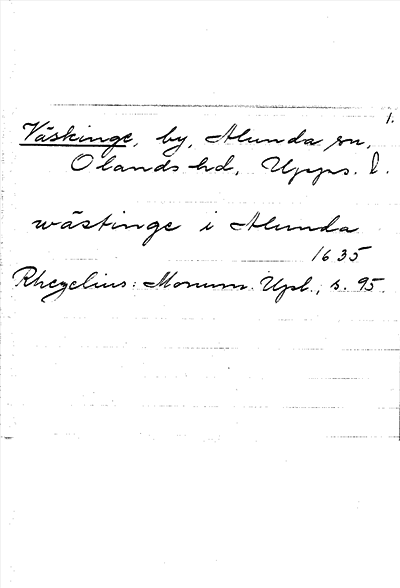 1.
Väskinge, by, Alunda sn,
Olands hd, Upps. l.
wästinge i Alunda
1635
Rhezelius: Monum. Upl., s. 95.